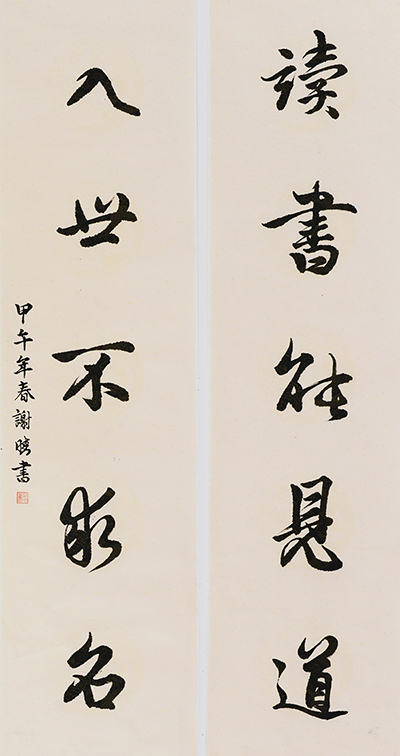 读書能見道
入世不求名
甲午年春謝書